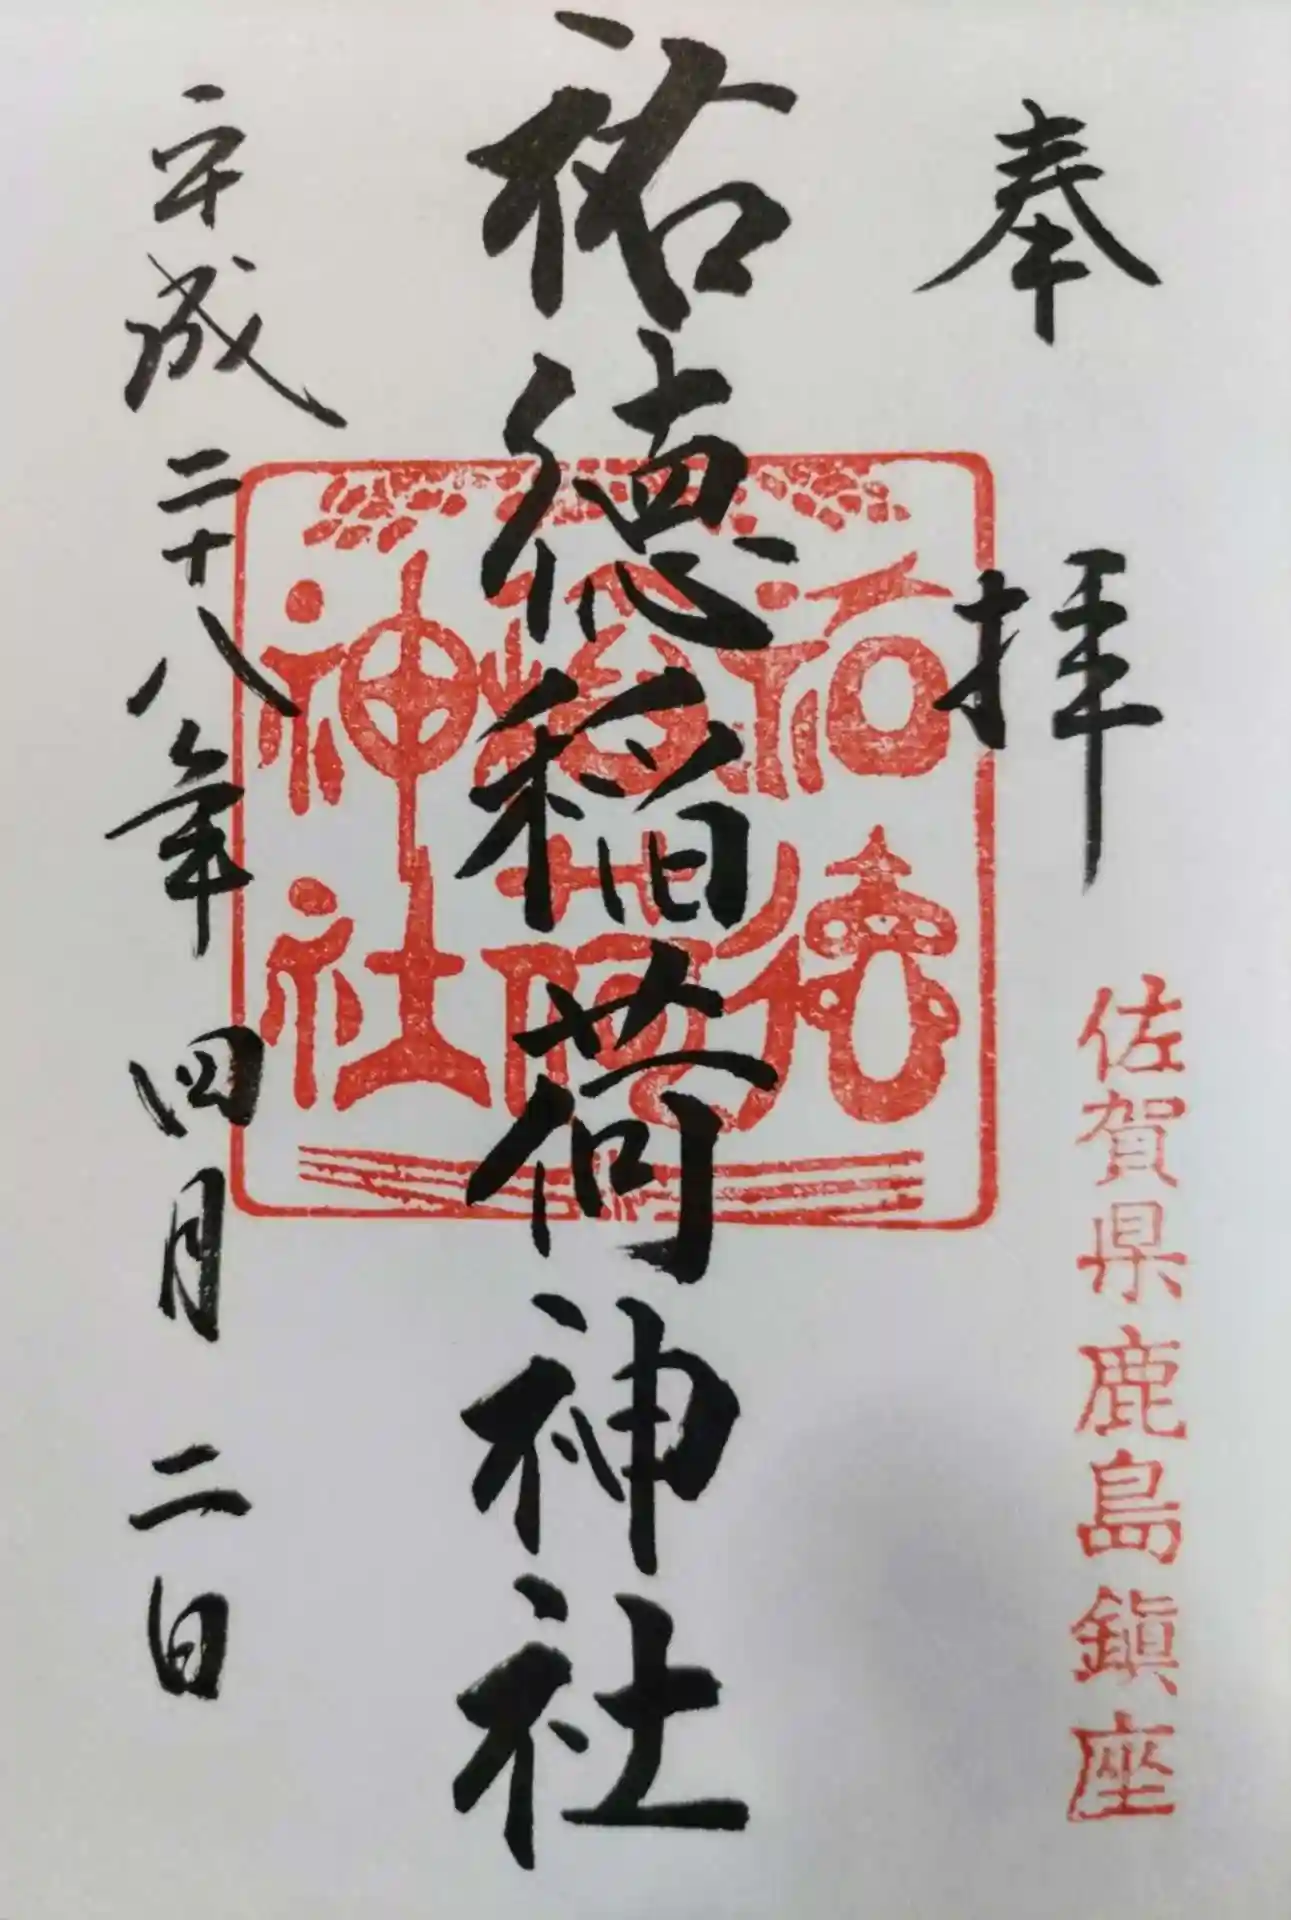 奉拝
佐賀県鹿島鎮座
祐徳稲荷神社
祐徳
稲荷
神社
平成二十八年四月二日